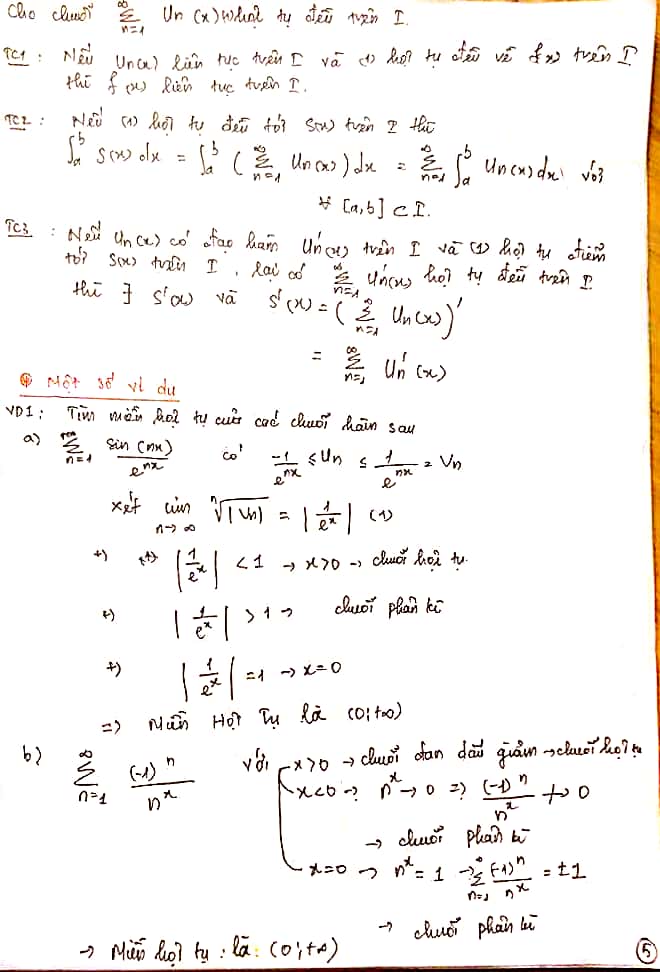 Cho chuỗi \sum_{n=1}^{\infty} Un (x) hội tụ đều trên I.
TC1 : Nếu Un(x) liên tục trên I và (1) hội tụ đều về f(x) trên I
thì f(x) liên tục trên I.
TC2 : Nếu (1) hội tụ đều tới S(x) trên I thì
\int_a^b S(x) dx = \int_a^b ( \sum_{n=1}^{\infty} Un(x) ) dx = \sum_{n=1}^{\infty} \int_a^b Un(x) dx với
∀ [a,b] ⊂ I.
TC3 : Nếu Un(x) có đạo hàm Un'(x) trên I và (1) hội tụ điểm
tới S(x) trên I, lại có \sum_{n=1}^{\infty} Un'(x) hội tụ đều trên I
thì ∃ S'(x) và S'(x) = ( \sum_{n=1}^{\infty} Un(x) )'
= \sum_{n=1}^{\infty} Un'(x)
⊕ Một số ví dụ
VD1 : Tìm miền hội tụ của các chuỗi hàm sau
a) \sum_{n=1}^{+\infty} \frac{sin(nx)}{e^{nx}} có \frac{-1}{e^{nx}} ≤ Un ≤ \frac{1}{e^{nx}} = Vn
xét \lim_{n→∞} \sqrt[n]{|Vn|} = |\frac{1}{e^x}| (1)
+) |\frac{1}{e^x}| < 1 → x>0 → chuỗi hội tụ.
+) |\frac{1}{e^x}| > 1 → chuỗi phân kì
+) |\frac{1}{e^x}| = 1 → x=0
=> Miền Hội Tụ là (0;+∞)
b) \sum_{n=1}^{\infty} \frac{(-1)^n}{n^x} Với x>0 → chuỗi đan dấu giảm → chuỗi hội tụ
x<0 → n^x → 0 => \frac{(-1)^n}{n^x} ↛ 0
→ chuỗi phân kì
x=0 → n^x = 1 → \sum_{n=1}^{\infty} \frac{(-1)^n}{n^x} = ±1
→ chuỗi phân kì
→ Miền hội tụ : là : (0;+∞)
5